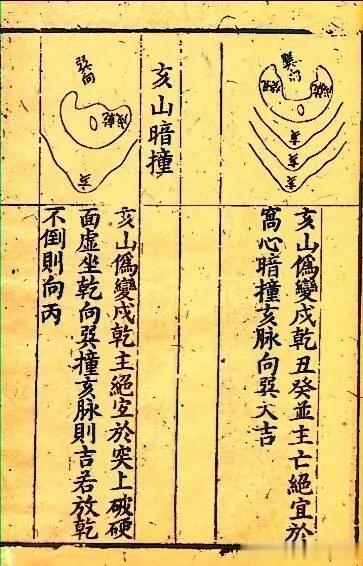 亥
亥
亥
亥山僞變戌乾丑癸並主亡絕宜於
窩心暗撞亥脉向巽大吉
亥山暗撞
巽向
戌乾
亥
亥山僞變戌乾主絕宜於突上破硬
面虛坐乾向巽撞亥脉則吉若放乾
不倒則向丙